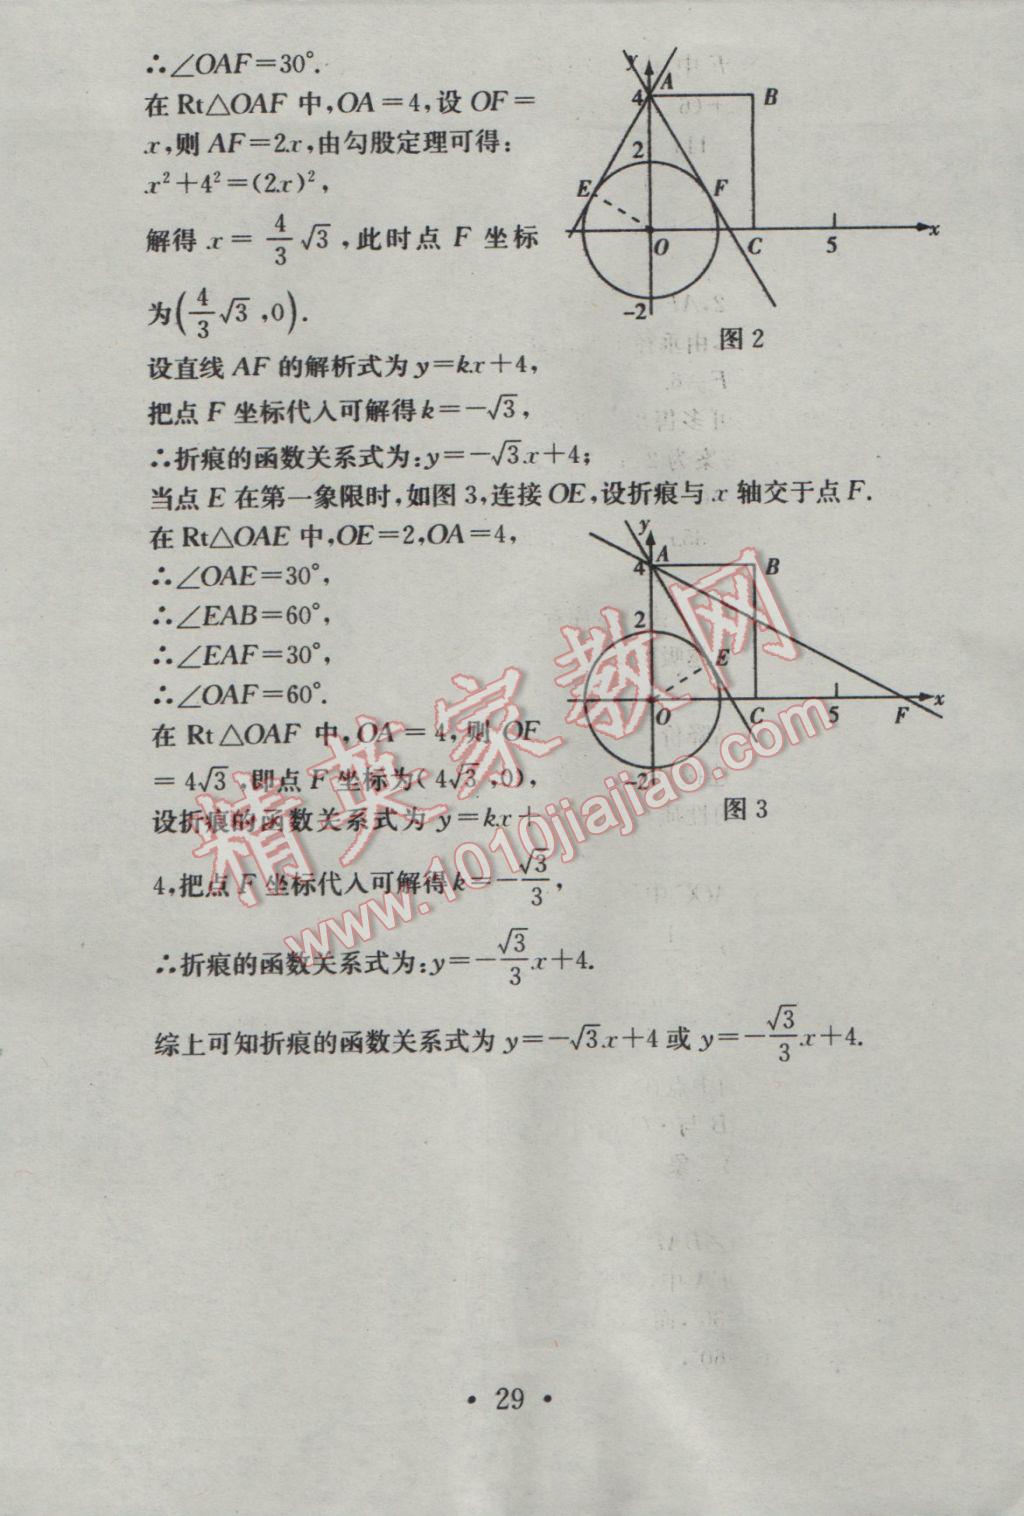 ∴∠OAF=30°.
在 Rt△OAF 中,OA=4,设 OF=
x,则 AF=2x,由勾股定理可得:
x²+4²=(2x)²,
解得 x=4/3√3,此时点 F 坐标
为(4/3√3,0).
设直线 AF 的解析式为 y=kx+4,
把点 F 坐标代入可解得 k=-√3,
∴折痕的函数关系式为:y=-√3x+4;
y
A
4
B
2
E
F
O
C
5
x
-2
图 2
当点 E 在第一象限时,如图 3,连接 OE,设折痕与 x 轴交于点 F.
在 Rt△OAE 中,OE=2,OA=4,
∴∠OAE=30°,
∴∠EAB=60°,
∴∠EAF=30°,
∴∠OAF=60°.
在 Rt△OAF 中,OA=4,则 OF
=4√3,即点 F 坐标为(4√3,0),
设折痕的函数关系式为 y=kx+
4,把点 F 坐标代入可解得 k=-√3/3,
∴折痕的函数关系式为:y=-√3/3x+4.
y
A
4
B
2
E
O
C
5
F
x
-2
图 3
综上可知折痕的函数关系式为 y=-√3x+4 或 y=-√3/3x+4.
精英家教网
www.1010jiajiao.com
• 29 •